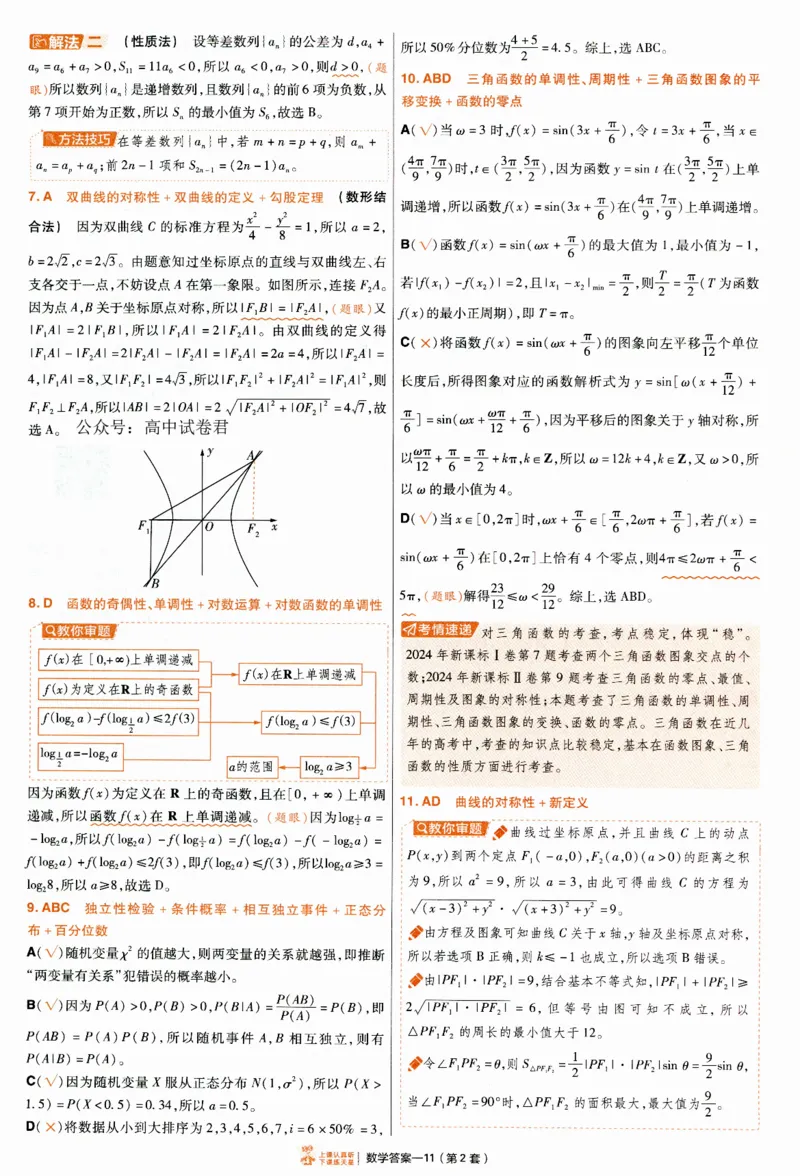 解法二 (性质法) 设等差数列{aₙ}的公差为d,a₄+
a₉=a₆+a₇>0,S₁₁=11a₆<0,所以a₆<0,a₇>0,则d>0,(题
眼)所以数列{aₙ}是递增数列,且数列{aₙ}的前6项为负数,从
第7项开始为正数,所以Sₙ的最小值为S₆,故选B。
方法技巧 在等差数列{aₙ}中,若m+n=p+q,则aₘ+
aₙ=aₚ+a_q;前2n-1项和S₂ₙ₋₁=(2n-1)aₙ。
7.A 双曲线的对称性+双曲线的定义+勾股定理 (数形结
合法) 因为双曲线C的标准方程为x²/4-y²/8=1,所以a=2,
b=2√2,c=2√3。由题意知过坐标原点的直线与双曲线左、右
支各交于一点,不妨设点A在第一象限。如图所示,连接F₂A。
因为点A,B关于坐标原点对称,所以|F₁B|=|F₂A|,(题眼)又
|F₁A|=2|F₁B|,所以|F₁A|=2|F₂A|。由双曲线的定义得
|F₁A|-|F₂A|=2|F₂A|-|F₂A|=|F₂A|=2a=4,所以|F₂A|=
4,|F₁A|=8,又|F₁F₂|=4√3,所以|F₁F₂|²+|F₂A|²=|F₁A|²,则
F₁F₂⊥F₂A,所以|AB|=2|OA|=2√(|F₂A|²+|OF₂|²)=4√7,故
选A。 公众号:高中试卷君
y
A
F₁ O F₂ x
B
8.D 函数的奇偶性、单调性+对数运算+对数函数的单调性
教你审题
f(x)在[0,+∞)上单调递减
f(x)为定义在R上的奇函数
f(x)在R上单调递减
f(log₂a)-f(log_{1/2}a)≤2f(3)
f(log₂a)≤f(3)
log_{1/2}a=-log₂a
a的范围
log₂a≥3
因为函数f(x)为定义在R上的奇函数,且在[0,+∞)上单调
递减,所以函数f(x)在R上单调递减。(题眼)因为log_{1/2}a=
-log₂a,所以f(log₂a)-f(log_{1/2}a)=f(log₂a)-f(-log₂a)=
f(log₂a)+f(log₂a)≤2f(3),即f(log₂a)≤f(3),所以log₂a≥3=
log₂8,所以a≥8,故选D。
9.ABC 独立性检验+条件概率+相互独立事件+正态分
布+百分位数
A(√)随机变量χ²的值越大,则两变量的关系就越强,即推断
“两变量有关系”犯错误的概率越小。
B(√)因为P(A)>0,P(B)>0,P(B|A)=P(AB)/P(A)=P(B),即
P(AB)=P(A)P(B),所以随机事件A,B相互独立,则有
P(A|B)=P(A)。
C(√)因为随机变量X服从正态分布N(1,σ²),所以P(X>
1.5)=P(X<0.5)=0.34,所以a=0.5。
D(×)将数据从小到大排序为2,3,4,5,6,7,i=6×50%=3,
所以50%分位数为(4+5)/2=4.5。综上,选ABC。
10.ABD 三角函数的单调性、周期性+三角函数图象的平
移变换+函数的零点
A(√)当ω=3时,f(x)=sin(3x+π/6),令t=3x+π/6,当x∈
(4π/9,7π/9)时,t∈(3π/2,5π/2),因为函数y=sin t在(3π/2,5π/2)上单
调递增,所以函数f(x)=sin(3x+π/6)在(4π/9,7π/9)上单调递增。
B(√)函数f(x)=sin(ωx+π/6)的最大值为1,最小值为-1,
若|f(x₁)-f(x₂)|=2,且|x₁-x₂|min=π/2,则T/2=π/2(T为函数
f(x)的最小正周期),即T=π。
C(×)将函数f(x)=sin(ωx+π/6)的图象向左平移π/12个单位
长度后,所得图象对应的函数解析式为y=sin[ω(x+π/12)+
π/6]=sin(ωx+ωπ/12+π/6),因为平移后的图象关于y轴对称,所
以ωπ/12+π/6=π/2+kπ,k∈Z,所以ω=12k+4,k∈Z,又ω>0,所
以ω的最小值为4。
D(√)当x∈[0,2π]时,ωx+π/6∈[π/6,2ωπ+π/6],若f(x)=
sin(ωx+π/6)在[0,2π]上恰有4个零点,则4π≤2ωπ+π/6<
5π,(题眼)解得23/12≤ω<29/12。综上,选ABD。
考情速递 对三角函数的考查,考点稳定,体现“稳”。
2024年新课标Ⅰ卷第7题考查两个三角函数图象交点的个
数;2024年新课标Ⅱ卷第9题考查三角函数的零点、最值、
周期性及图象的对称性;本题考查了三角函数的单调性、周
期性、三角函数图象的变换、函数的零点。三角函数在近几
年的高考中,考查的知识点比较稳定,基本在函数图象、三角
函数的性质方面进行考查。
11.AD 曲线的对称性+新定义
教你审题 曲线过坐标原点,并且曲线C上的动点
P(x,y)到两个定点F₁(-a,0),F₂(a,0)(a>0)的距离之积
为9,所以a²=9,所以a=3,由此可得曲线C的方程为
√((x-3)²+y²)·√((x+3)²+y²)=9。
由方程及图象可知曲线C关于x轴,y轴及坐标原点对称,
所以若选项B正确,则k≤-1也成立,所以选项B错误。
由|PF₁|·|PF₂|=9,结合基本不等式知,|PF₁|+|PF₂|≥
2√(|PF₁|·|PF₂|)=6,但等号由图可知不成立,所以
△PF₁F₂的周长的最小值大于12。
令∠F₁PF₂=θ,则S△PF₁F₂=1/2|PF₁|·|PF₂|sin θ=9/2sin θ,
当∠F₁PF₂=90°时,△PF₁F₂的面积最大,最大值为9/2。
上课认真听
下课练天星
数学答案—11(第2套)